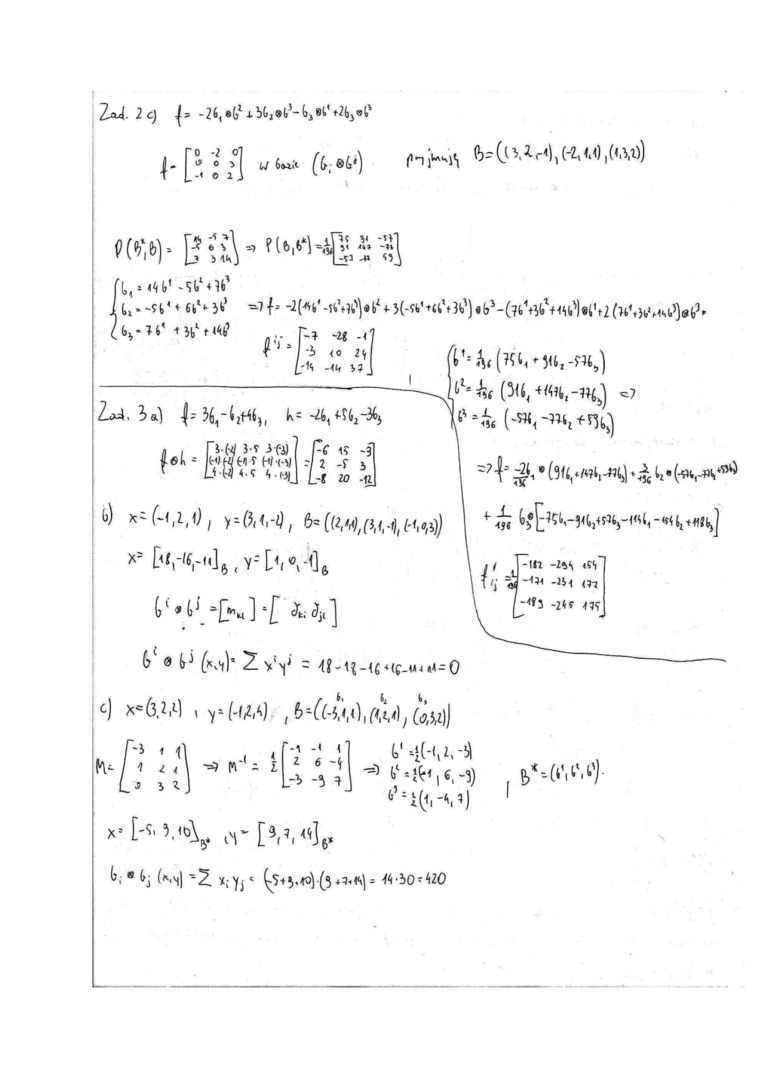 Zad. 2 c) f = -2b₁⊗b² + 3b₂⊗b³ - b₃⊗b¹ + 2b₃⊗b³
f = [0 -2 0; 0 0 3; -1 0 2] w bazie (bᵢ⊗bʲ) przyjmuję B = ((3,2,-1), (-2,1,1), (1,3,2))
P(B*,B) = [14 -5 7; -5 6 3; 7 3 14] ⇒ P(B,B*) = 1/196 [75 91 -57; 91 147 -77; -57 -77 59]
{b₁ = 14b¹ - 5b² + 7b³
b₂ = -5b¹ + 6b² + 3b³ ⇒ f = -2(14b¹ - 5b² + 7b³)⊗b² + 3(-5b¹ + 6b² + 3b³)⊗b³ - (7b¹ + 3b² + 14b³)⊗b¹ + 2(7b¹ + 3b² + 14b³)⊗b³
b₃ = 7b¹ + 3b² + 14b³
fⁱʲ = [-7 -28 -1; -3 10 24; -14 -14 37]
{b¹ = 1/196 (75b₁ + 91b₂ - 57b₃)
b² = 1/196 (91b₁ + 147b₂ - 77b₃) ⇒
b³ = 1/196 (-57b₁ - 77b₂ + 59b₃)
⇒ f = -2b₁/196 ⊗ (91b₁ + 147b₂ - 77b₃) + 3/196 b₂⊗(-57b₁ - 77b₂ + 59b₃)
+ 1/196 b₃⊗[-75b₁ - 91b₂ + 57b₃ - 114b₁ - 154b₂ + 118b₃]
fⁱⱼ = 1/196 [-182 -294 154; -171 -231 177; -189 -245 175]
Zad. 3 a) f = 3b₁ - b₂ + 4b₃, h = -2b₁ + 5b₂ - 3b₃
f⊗h = [3·(-2) 3·5 3·(-3); (-1)(-2) (-1)·5 (-1)·(-3); 4·(-2) 4·5 4·(-3)] = [-6 15 -9; 2 -5 3; -8 20 -12]
b) x = (-1,2,1), y = (3,1,-2), B = ((2,1,1), (3,1,-1), (-1,0,3))
x = [18,-16,-11]_B, y = [1,0,-1]_B
bⁱ⊗bʲ = [m_kl] = [δ_ki δ_jl]
bⁱ⊗bʲ(x,y) = Σ xⁱyʲ = 18-18-16+16-11+11 = 0
c) x = (3,2,2), y = (-1,2,4), B = ((-3,1,1), (1,2,1), (0,3,2))
b₁ b₂ b₃
M = [-3 1 1; 1 2 1; 0 3 2] ⇒ M⁻¹ = 1/2 [-1 -1 1; 2 6 -4; -3 -9 7] ⇒ b¹ = 1/2(-1, 2, -3)
b² = 1/2(-1, 6, -9), B* = (b¹, b², b³).
b³ = 1/2(1, -4, 7)
x = [-5, 9, 10]_B*, y = [9, 7, 14]_B*
bᵢ⊗bⱼ(x,y) = Σ xᵢyⱼ = (-5+9+10)·(9+7+14) = 14·30 = 420